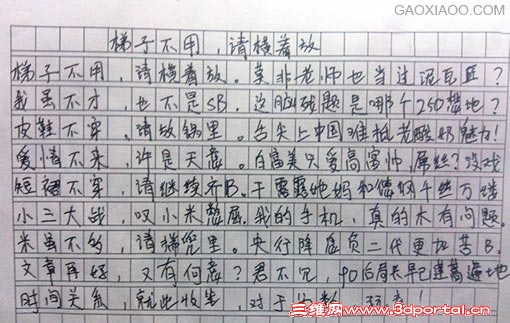 GAOXIAOO.COM
梯子不用，请横着放
梯子不用，请横着放。莫非老师也当过泥瓦匠？
我虽不才，也不是SB。这脑残题是哪个250想地？
皮鞋不穿，请放锅里。舌尖上中国 老酸奶魅力！
爱情不来，许是天意。白富美只爱高富帅，屌丝？没戏
短裙不穿，请继续齐B。干露露她妈和德纲千丝万缕
小三大战，叹小米憋屈。我的手机，真的木有问题。
米虽不多，请揣兜里。央行降息负二代更加苦B。
文章再好，又有何意？君不见，90后局长早已遍地
时间关系，就此收笔，对于
三维网www.3dportal.cn